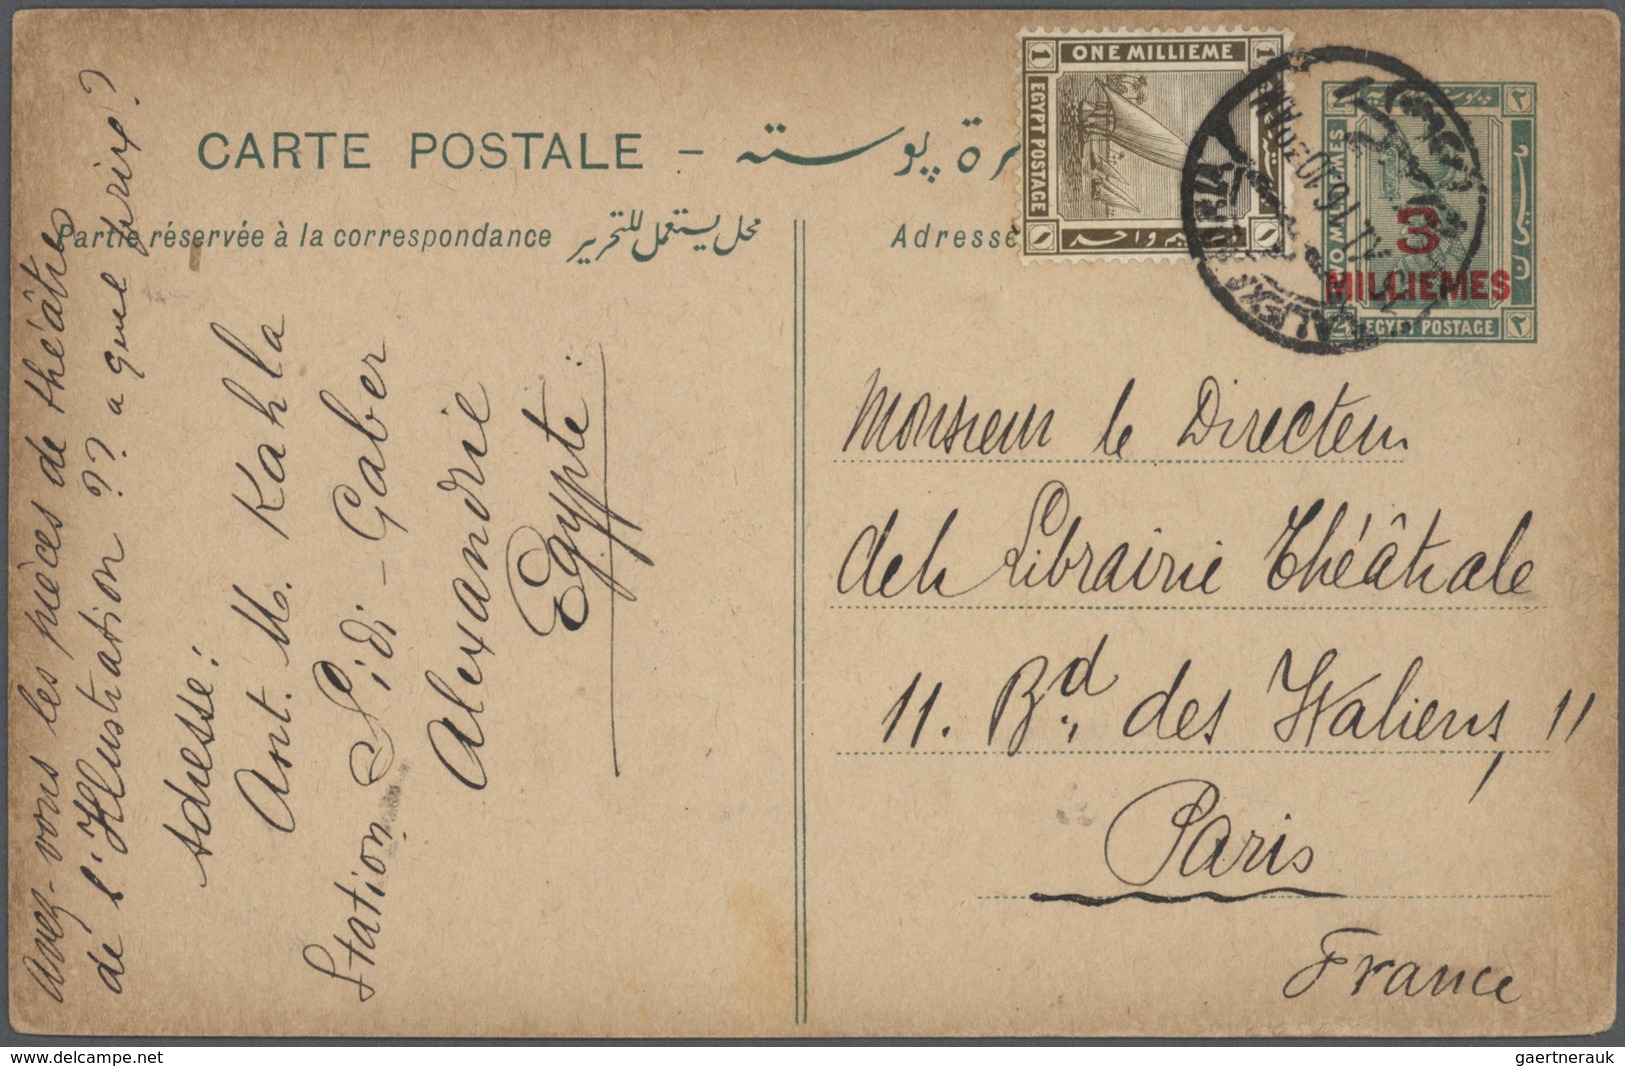 ONE MILLIEME
1
1
EGYPT POSTAGE
TWO MILLIEMES
3
MILLIEMES
EGYPT POSTAGE
CARTE POSTALE - پوسته
Partie réservée à la correspondance محل يستعمل للتحرير
Adresse
Avez-vous les pièces de théâtre
de l'Illustration ?? a quel prix?
Adresse:
Ant. M. Kahla
Station Sidi-Gaber
Alexandrie
Egypte
Monsieur le Directeur
de la Librairie Théâtrale
11. Bd. des Italiens, 11
Paris
France
www.delcampe.net
gaertnerauk